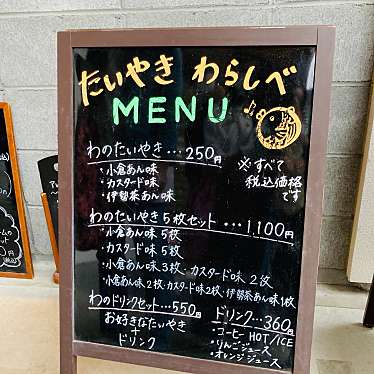 たいやき わらしべ
MENU
わのたいやき・・・250円
・小倉あん味
・カスタード味
・伊勢茶あん味
※すべて
税込価格
です
わのたいやき5枚セット・・・1,100円
・小倉あん味 5枚
・カスタード味 5枚
・小倉あん味3枚・カスタード味 2枚
・小倉あん味2枚・カスタード味2枚・伊勢茶あん味1枚
わのドリンクセット・・・550円
お好きなたいやき
+
ドリンク
ドリンク・・・360円
・コーヒー HOT/ICE
・りんごジュース
・オレンジジュース